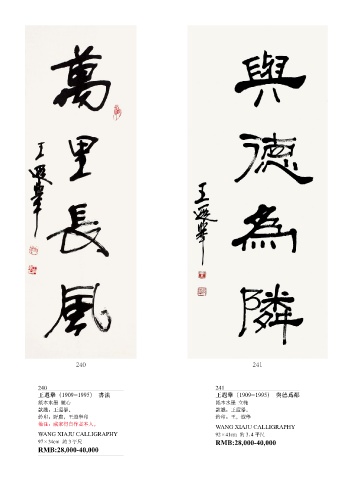 萬里長風
王遐舉
與德為隣
王遐舉
240
241
240
王遐舉（1909~1995） 書法
紙本水墨 鏡心
款識：王遐舉。
WANG XIAJU CALLIGRAPHY
97×34cm 約3平尺
RMB:28,000-40,000
241
王遐舉（1909~1995） 與德爲鄰
紙本水墨 立軸
款識：王遐舉。
WANG XIAJU CALLIGRAPHY
92×41cm 約3.4平尺
RMB:28,000-40,000